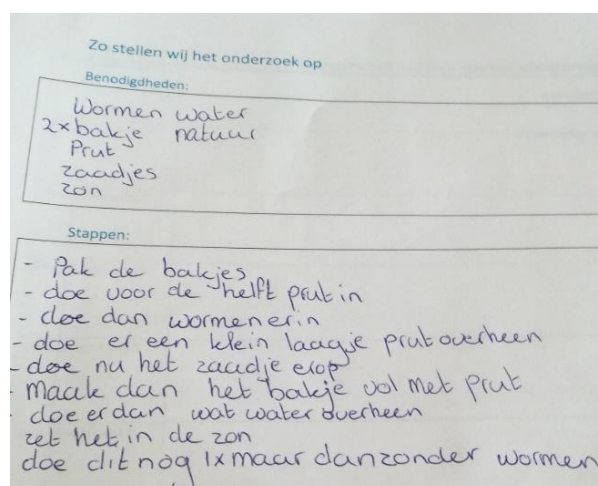 Zo stellen wij het onderzoek op
Benodigdheden:
Wormen water
2x bakje natuur
Prut
zaadjes
zon
Stappen:
- Pak de bakjes
- doe voor de helft prut in
- doe dan wormen erin
- doe er een klein laagje prut overheen
- doe nu het zaadje erop
- maak dan het bakje vol met prut
- doe er dan wat water overheen
zet het in de zon
doe dit nog 1x maar dan zonder wormen